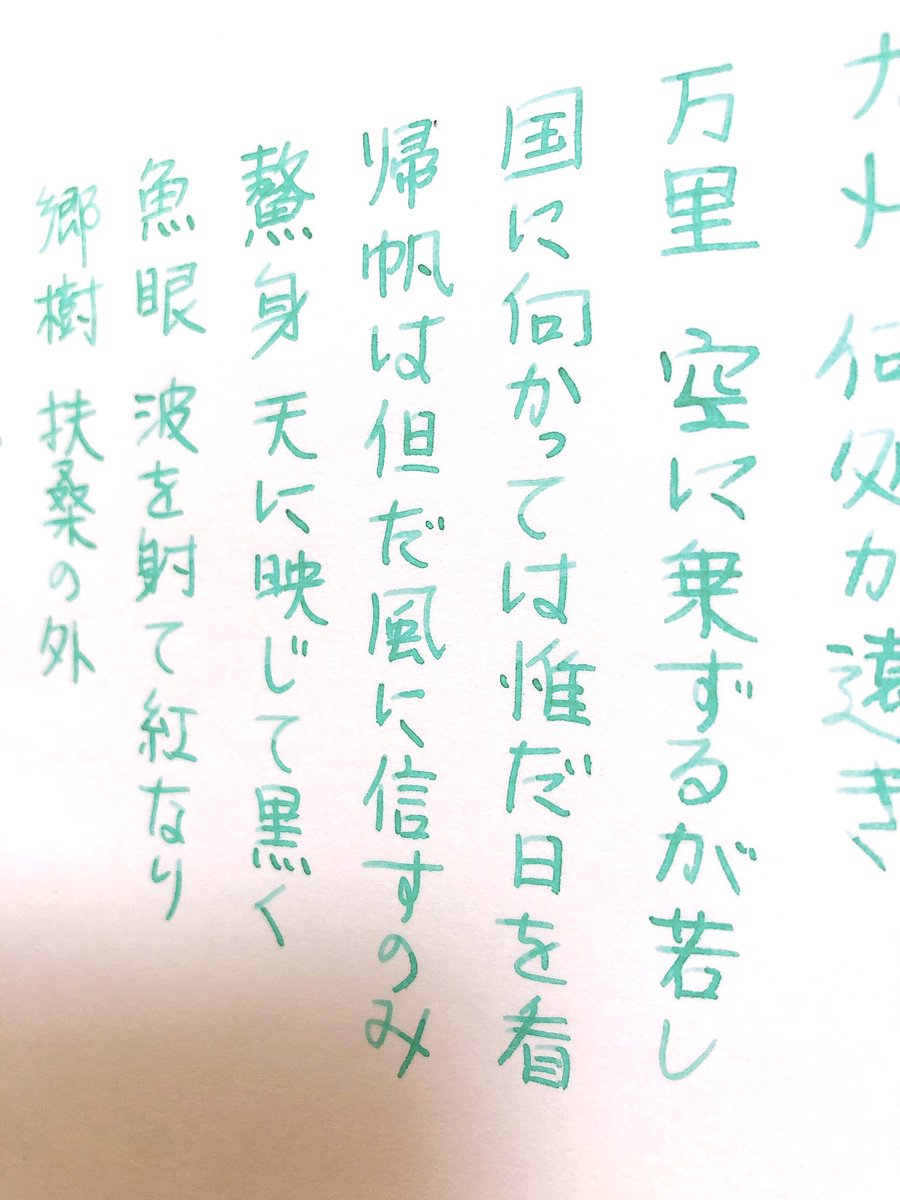 九州 何処か遠き
万里 空に乗ずるが若し
国に向かっては惟だ日を看
帰帆は但だ風に信すのみ
鰲身 天に映じて黒く
魚眼 波を射て紅なり
郷樹 扶桑の外